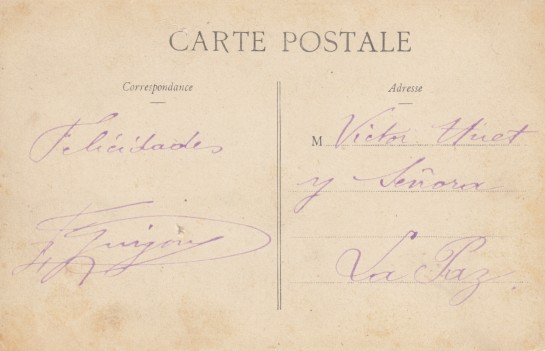 CARTE POSTALE
Correspondance
Adresse
Felicidades
M Victor Huet
y Señora
La Paz